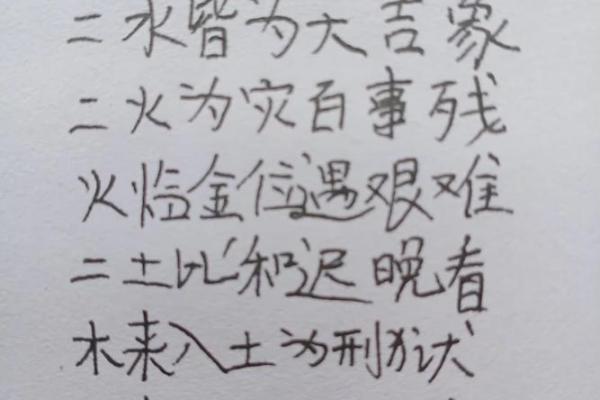 二水皆为大吉象
二火为灾百事残
火临金位遇艰难
二土比和迟晚看
木来入土为刑狱